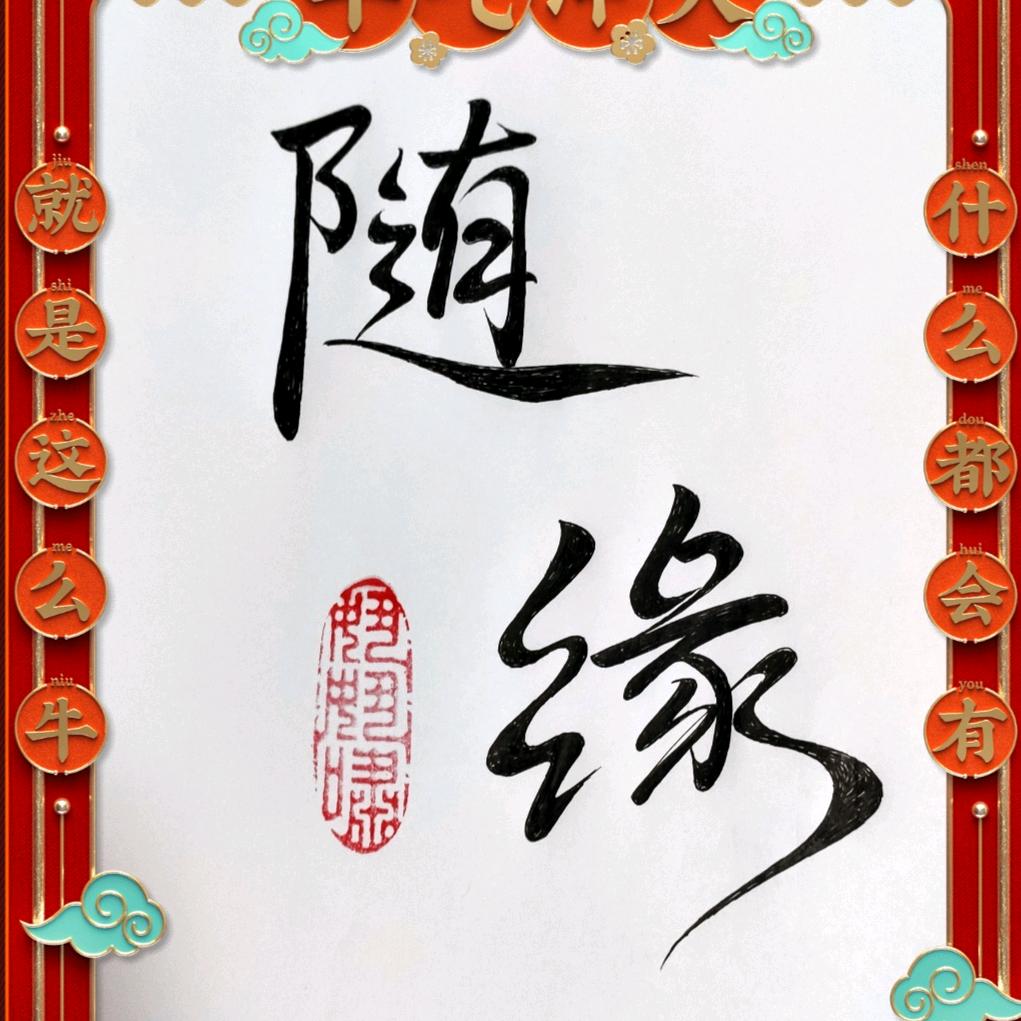 随
缘
shen me dou hui you
什么都会有
jiu shi zhe me niu
就是这么牛